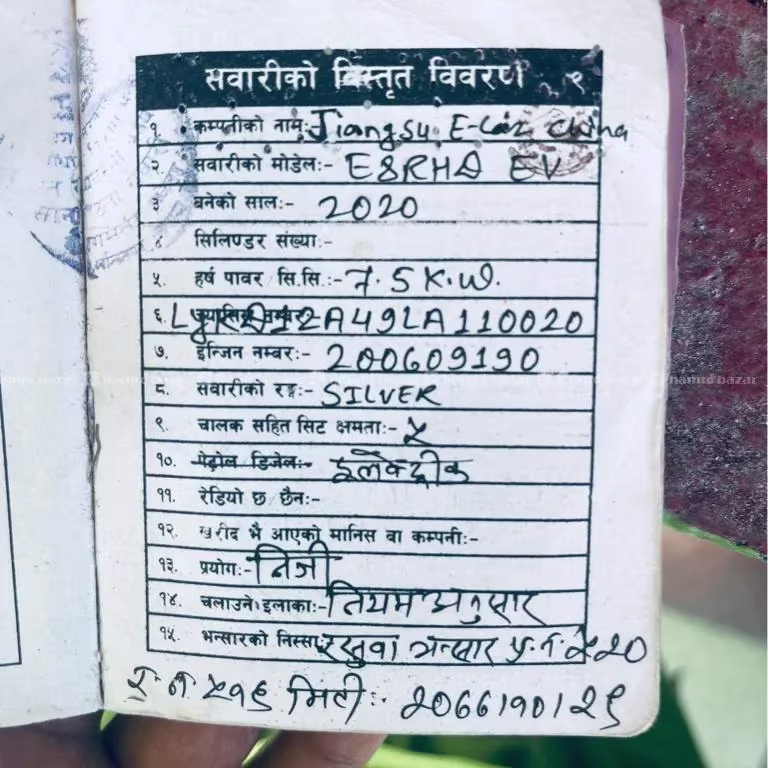 सवारीको विस्तृत विवरण १
१. कम्पनीको नाम:- Jiangsu E-Car China
२. सवारीको मोडेल:- E8RHD EV
३ बनेको साल:- 2020
४ सिलिण्डर संख्या:-
५. हर्ष पावर सि.सि.:- 7.5 K.W.
६. A49LA110020
७. इन्जिन नम्बर:- 200609190
८. सवारीको रङ्ग:- SILVER
९. चालक सहित सिट क्षमता:- ५
१०. पेट्रोल डिजेल:- इलेक्ट्रीक
११. रेडियो छ छैन:-
१२. खरीद भै आएको मानिस वा कम्पनी:-
१३. प्रयोग:- निजी
१४. चलाउने इलाका:- नियम अनुसार
१५. भन्सारको निस्सा रसुवा भन्सार प्र.न. ५२०
र न ५१९ मिती:-
hamrobazar